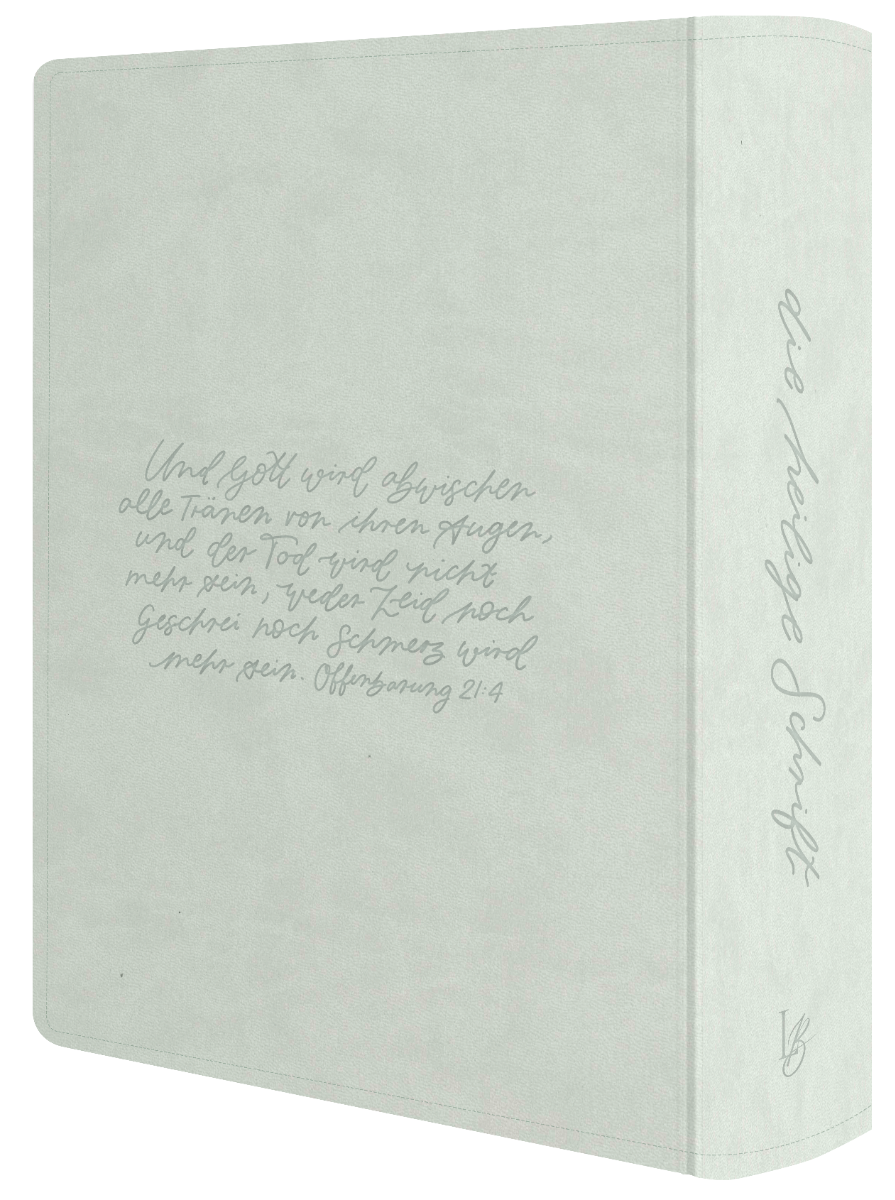 Und Gott wird abwischen
alle Tränen von ihren Augen,
und der Tod wird nicht
mehr sein, weder Leid noch
Geschrei noch Schmerz wird
mehr sein. Offenbarung 21:4
die heilige Schrift